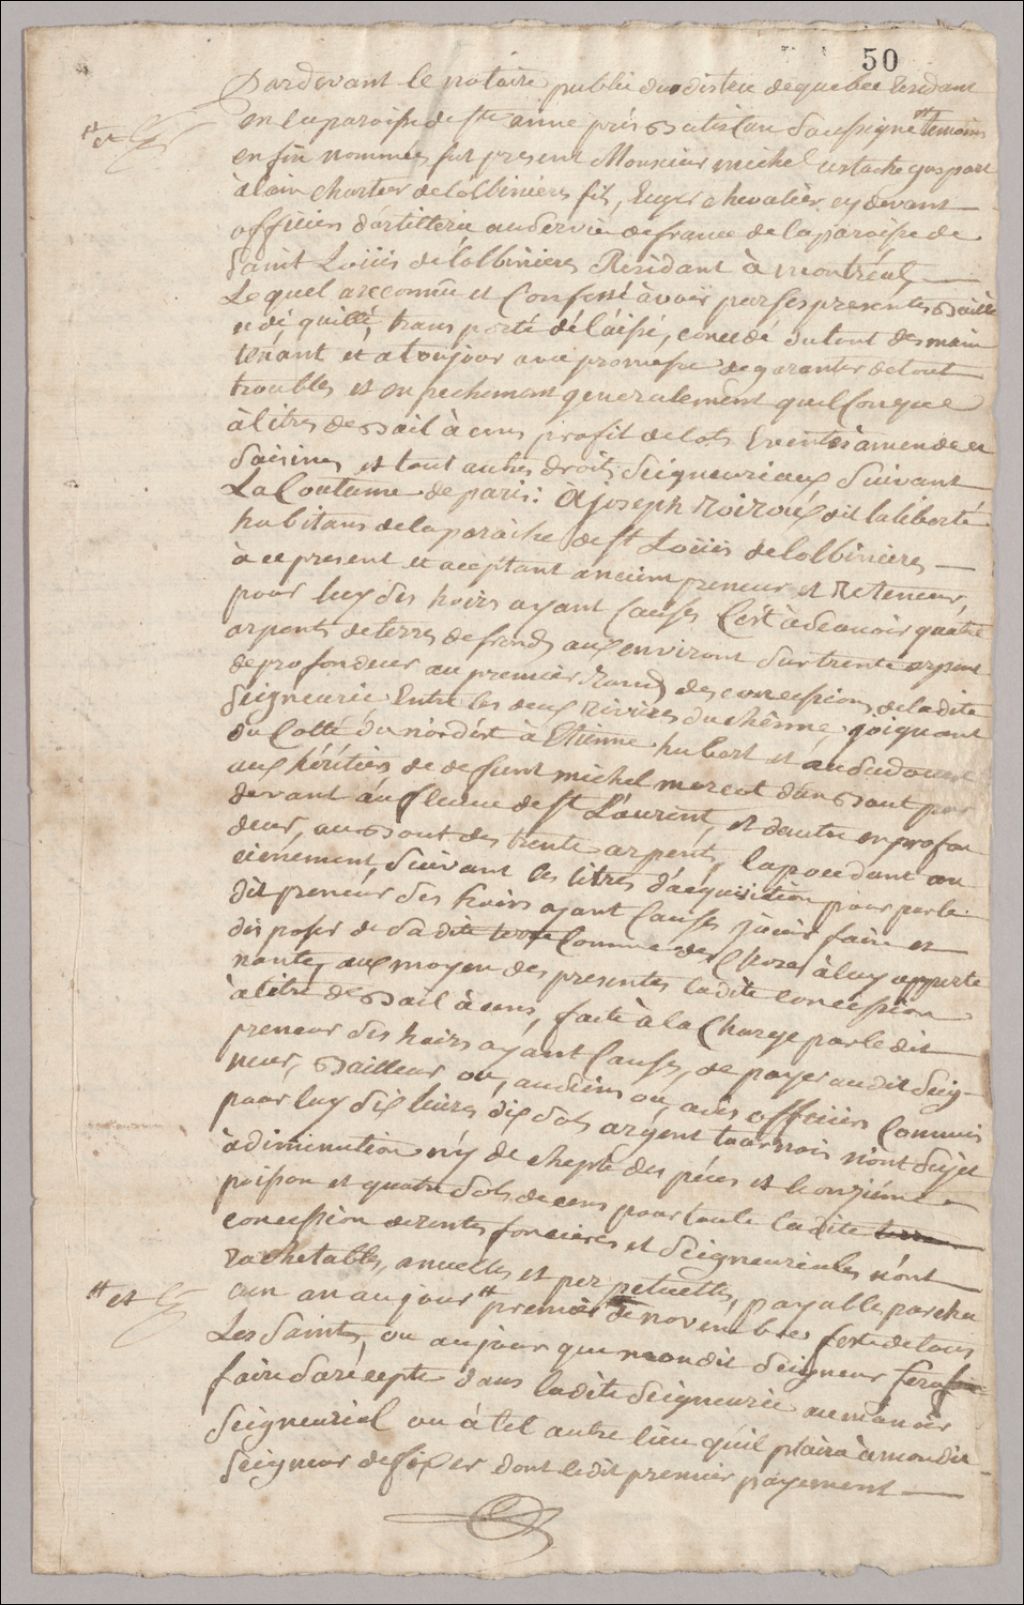 50
Pardevant le notaire public du distric de quebec Residant
en la paroisse de ste anne près Batiscan Soussigné # temoins
# et
en fin nommés fut present Monsieur michel ustache gaspart
àlain Chartier delotbiniere fils, Ecuyer chevalier cy devant
officier d'artillerie au Servic de france de la paroisse de
Saint Loüis de lotbinieres Residant à montréal,
Lequel a reconnu et Confessé àvoir par ses presentes Baillé
cedé, quitté, trans porté délaissé, concedé du tout des main
tenant et a toujour avec promesse de garantir de tout
troubles et enpechement generalement quelConque
à titres de Bail à cens profit de lots Et ventes àmende et
Saisines et tout autres droits Seigneuriaux Suivant
La Coutume de paris: à joseph Roirou dit laliberté
habitans de la paroisse de St Loüis delotbinieres
à ce present et acceptant ancien preneur et Reteneur,
pour luy Ses hoirs ayant Causes C'est à Scavoir quatre
arpents de terres de frond, aux environt Sur trente arpent
de profondeur au premier Rand des concessions de la dite
Seigneurie Entre les deux Rivires du chêsne, joignant
du Cotté du nordest à Etienne hubert et au Sudouest
aux héritiers de defunt michel marcot d'un Bout par
devant au fleuve de St Laurent, et dautre en profon
deur, au Bout des trente arpents, la possedant an
cienement, Suivant les titres d'acquisition pour par le
dit preneur Ses hoirs ayant Causes joüir faire et
dis poser de la dite terre Comme des Choses à luy apparte
nante, aux moyen des presentes ladite concession
à titre de Bail à cens, faite à la Charge par le dit
preneur Ses hoirs ayant Causes, de payer au dit Seig-
neur, Bailleur ou, aux Siens ou, à ses officiers Commis
pour luy dix livres dix Sols argent tournois n'ont Sujet
à diminution n'y de chepte des péces et l'onziéme
poisson et quatre Sols de cens pour toute ladite terre
concession de rentes foncieres et Seigneuriales n'ont
rachetables, anuelles et per petuelles, payable par cha
# et
cun an au jour # premier de novembre feste de tous
Les Saints, ou au jour que mondit Seigneur fera
faire Sa recepte dans ladite Seigneurie au manoir
Seigneurial ou à tel autre lieu qu'il plaira à mondit
Seigneur de fixer dont ledit premier payement